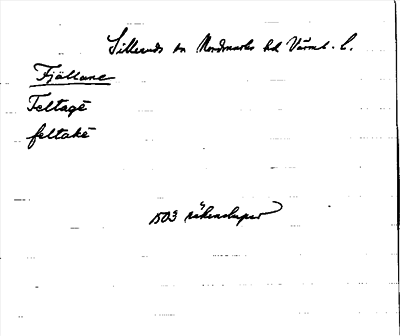 Sillerud sn Nordmarks hd Värml. l.
Fjällane
Feltagé
feltaké
1503 räkenskaper